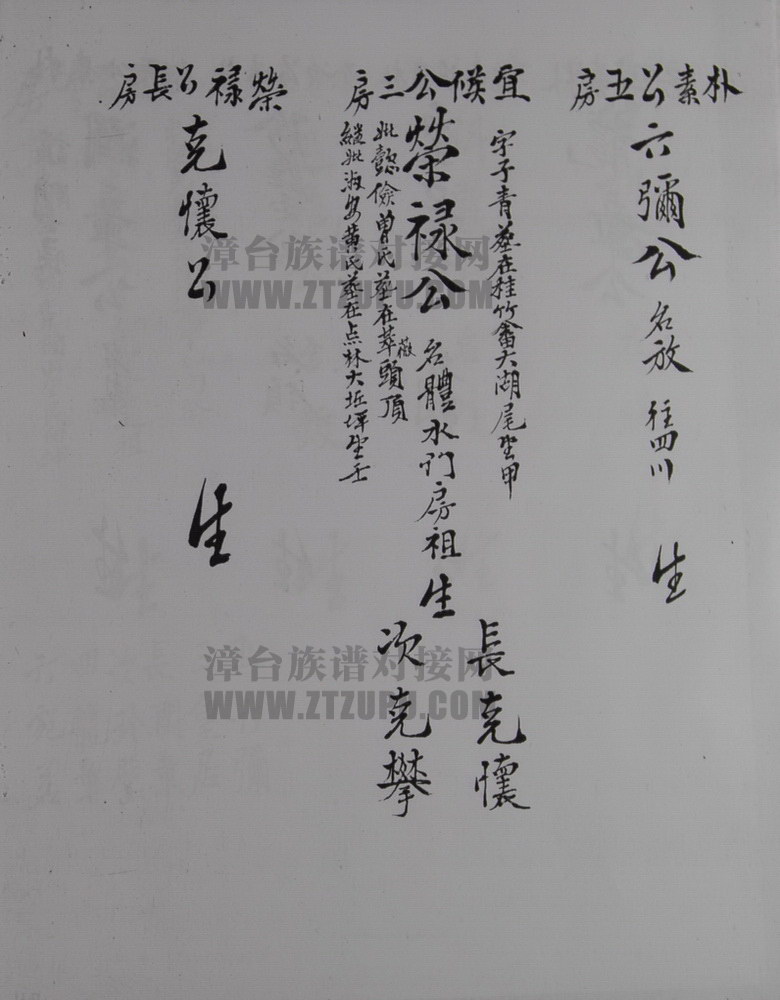 朴素公五房
六彌公 名放 往四川 生
宜候公三房
字子青墓在桂竹畬大湖尾坐甲
榮禄公 名體水门房祖 生
長克懷
次克攀
妣懿儉曽氏墓在萃薇頭頂
継妣淑安黄氏墓在点林大坵坪坐壬
榮禄公長房
克懷公 生
漳台族谱对接网
WWW.ZTZUPU.COM
漳台族谱对接网
WWW.ZTZUPU.COM